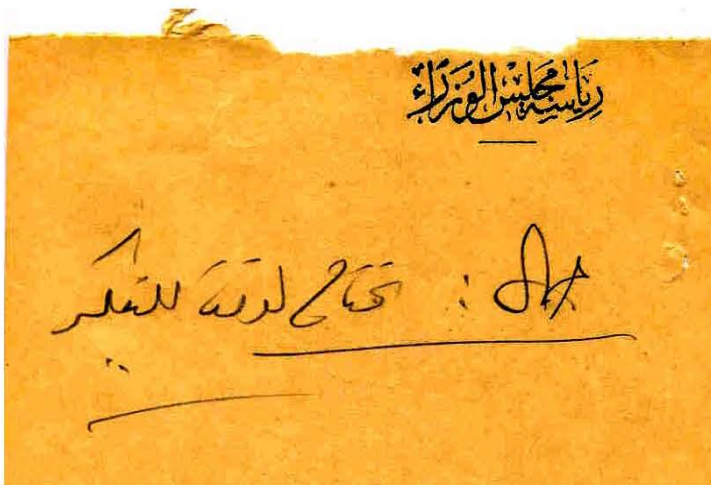 رياسة مجلس الوزراء
: تحتاج لوقت للتفكير